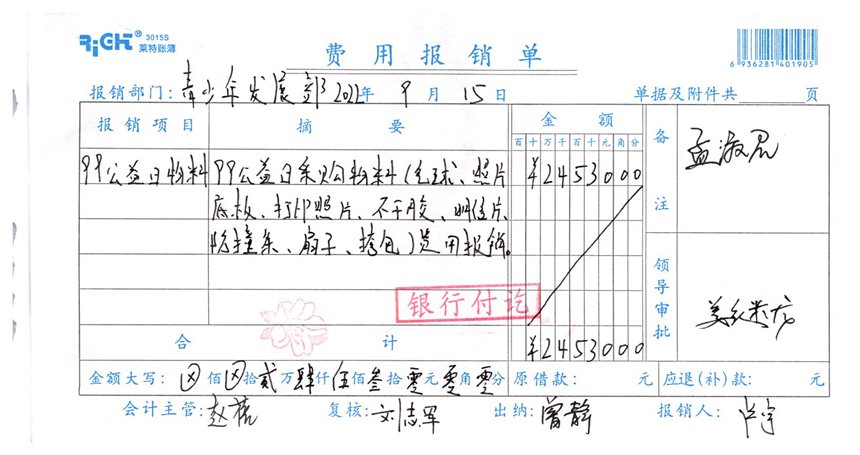 RiGHT® 3015S 莱特账簿
费用报销单
6 936281 401905
报销部门：青少年发展部 2022年 9月 15日 单据及附件共 页
报销项目 摘要 金额 备注
百十万千百十元角分
99公益日物料 99公益日采购物料(毛球、照片 ¥2453000 孟淑君
底板、打印照片、不干胶、明信片、
防撞条、扇子、挎包)费用报销。
银行付讫
领导审批
合计 ¥2453000
金额大写：⊗佰⊗拾贰万肆仟伍佰叁拾零元零角零分 原借款： 元 应退(补)款： 元
会计主管： 复核：刘志军 出纳：曾静 报销人：